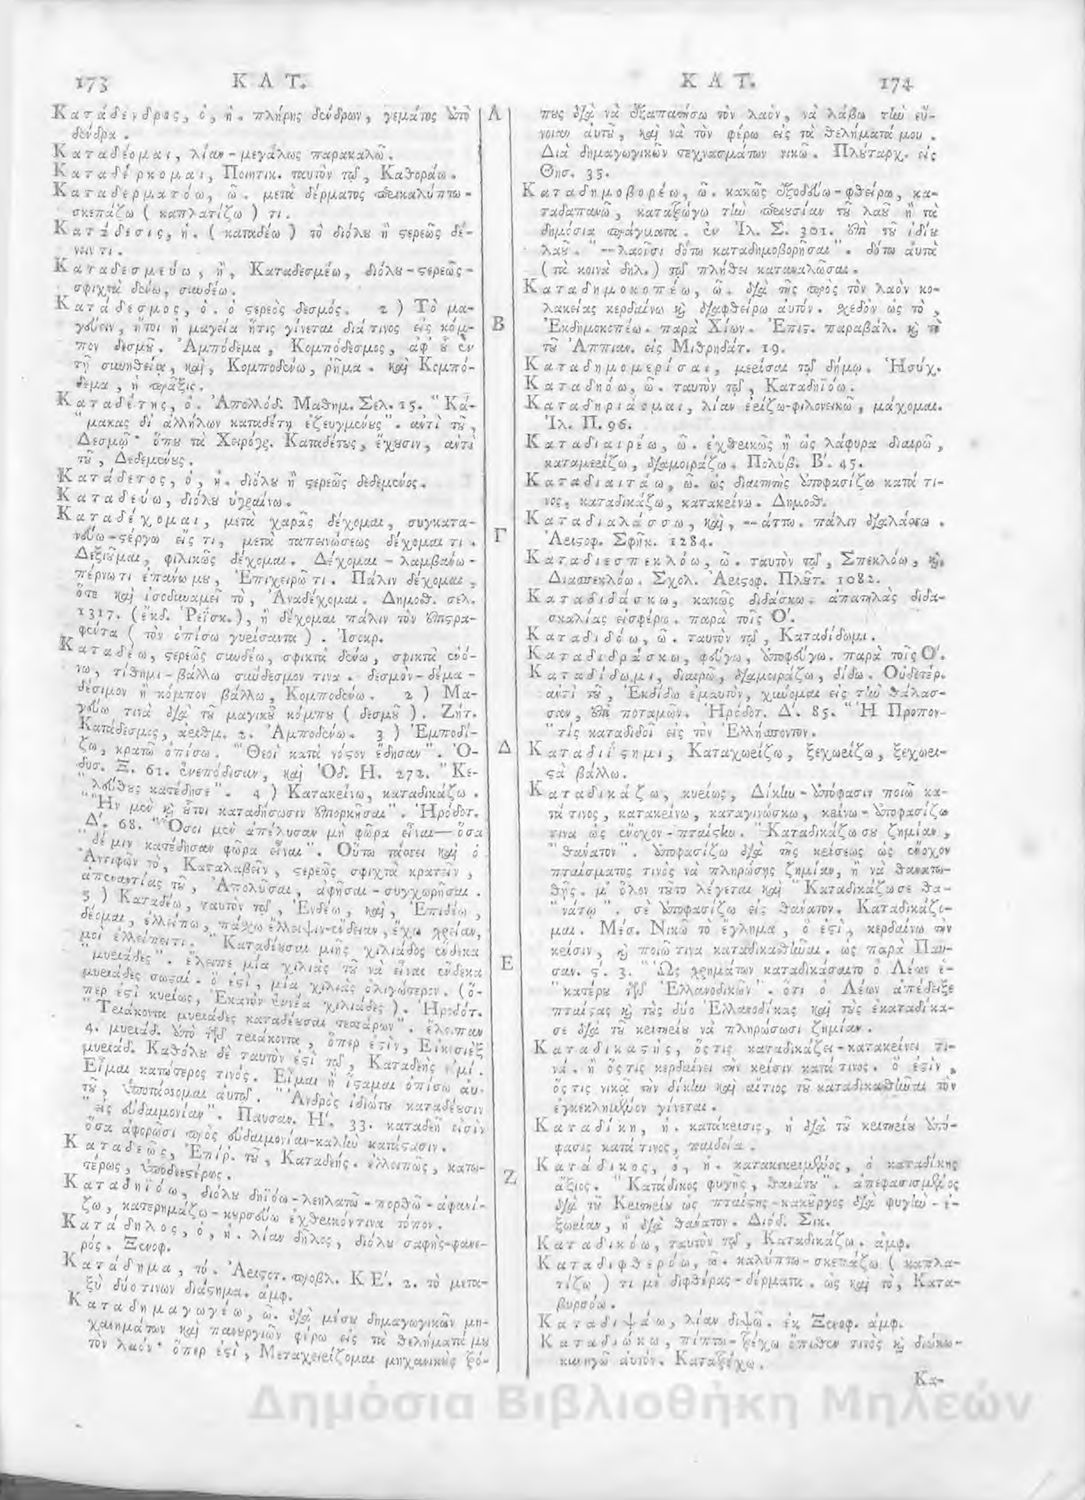 173 ΚΑΤ.
Κατάδενδρος, ὁ, ἡ. πλήρης δένδρων, γεμάτος ἀπὸ
δένδρα.
Καταδέομαι, λίαν-μεγάλως παρακαλῶ.
Καταδέρκομαι, Ποιητικ. ταυτὸν τῷ, Καθοράω.
Καταδερματόω, ῶ. μετὰ δέρματος περικαλύπτω-
σκεπάζω ( καπλατίζω ) τι.
Κατάδεσις, ἡ. ( καταδέω ) τὸ διόλου ἢ στερεῶς δέ-
νειν τι.
Καταδεσμεύω, ἢ, Καταδεσμέω, διόλου-στερεῶς-
σφιχτὰ δένω, συνδέω.
Κατάδεσμος, ὁ. ὁ στερεὸς δεσμός. 2 ) Τὸ μα-
γεύειν, ἤτοι ἡ μαγεία ἥτις γίνεται διά τινος εἰς κόμ-
πον δεσμοῦ. Ἀμπόδεμα, Κομπόδεσμος, ἀφ' οὗ ἐν
τῇ συνηθείᾳ, καὶ, Κομποδένω, ῥῆμα. καὶ Κομπό-
δεμα, ἡ πρᾶξις.
Καταδέτης, ὁ. Ἀπολλόδ. Μαθημ. Σελ. 15. "Κλί-
"μακας δι' ἀλλήλων καταδέτῃ ἐζευγμένας". ἀντὶ τοῦ,
Δεσμῷ· ὅπου τὰ Χειρόγρ. Καταδέτους, ἔχουσιν, ἀντὶ
τοῦ, Δεδεμένους.
Κατάδετος, ὁ, ἡ. διόλου ἢ στερεῶς δεδεμένος.
Καταδεύω, διόλου ὑγραίνω.
Καταδέχομαι, μετὰ χαρᾶς δέχομαι, συγκατα-
νεύω-στέργω εἴς τι, μετὰ ταπεινώσεως δέχομαί τι.
Δεξιοῦμαι, φιλικῶς δέχομαι. Δέχομαι-λαμβάνω-
πέρνω τι ἐπάνω μου, Ἐπιχειρῶ τι. Πάλιν δέχομαι,
ὅτε καὶ ἰσοδυναμεῖ τὸ, Ἀναδέχομαι. Δημοσθ. σελ.
1317. (ἐκδ. Ῥεΐσκ.), ἢ δέχομαι πάλιν τὸν ἐπιστρα-
φέντα ( τὸν ὀπίσω γυρίσαντα ). Ἰσοκρ.
Καταδέω, στερεῶς συνδέω, σφικτὰ δένω, σφικτὰ ἑνό-
νω, τίθημι-βάλλω σύνδεσμόν τινα. δεσμὸν-δέμα-
δέσιμον ἢ κόμπον βάλλω, Κομποδένω. 2 ) Μα-
γεύω τινὰ διὰ τοῦ μαγικοῦ κόμπου ( δεσμοῦ ). Ζήτ.
Κατάδεσμος, ἀριθμ. 2. Ἀμποδένω. 3 ) Ἐμποδί-
ζω, κρατῶ ὀπίσω. "Θεοὶ κατὰ νόστον ἔδησαν". Ὀ-
δυσ. Ξ. 61. ἐνεπόδισαν, καὶ Ὀδ. Η. 272. "Κε-
"λεύθους κατέδησε". 4 ) Κατακρίνω, καταδικάζω.
"Ἢν μὲν καὶ οὗτοι καταδήσωσιν ἐπιορκῆσαι". Ἡρόδοτ.
Δ'. 68. "Ὅσοι μὲν ἀπέλυσαν μὴ φῶρα εἶναι—ὅσα
"δέ μιν κατέδησαν φῶρα εἶναι". Οὕτω πάσχει καὶ ὁ
Ἀντιφῶν τὸ, Καταλαβεῖν, στερεῶς σφιχτὰ κρατεῖν,
ἀπεναντίας τοῦ, Ἀπολῦσαι, ἀφῆσαι-συγχωρῆσαι.
5 ) Καταδέω, ταυτὸν τῷ, Ἐνδέω, καὶ, Ἐπιδέω,
δέομαι, ἐλλείπω, πάσχω ἔλλειψιν-ἔνδειαν, ἔχω χρείαν,
μοὶ ἐλλείπει τι. "Καταδέουσαι μιῆς χιλιάδος ἕνδεκα
"μυριάδες". ἔλειπε μία χιλιὰς τοῦ νὰ εἶναι ἕνδεκα
μυριάδες σωσταί. ὅ ἐστι, μία χιλιὰς ὀλιγώτερον. (ὅ-
περ ἐστὶ κυρίως, Ἑκατὸν ἐννέα χιλιάδες ). Ἡρόδοτ.
"Τριάκοντα μυριάδες καταδέουσαι τεσσάρων". ἔλειπαν
4. μυριάδ. ἀπὸ τῶν τριάκοντα, ὅπερ ἐστὶν, Εἰκοσιὲξ
μυριάδ. Καθόλου δὲ ταυτὸν ἐστὶ τῷ, Καταδεής εἰμι.
Εἶμαι κατώτερος τινός. Εἶμαι ἢ ἵσταμαι ὀπίσω αὐ-
τοῦ, ὑποτάσσομαι αὐτῷ. "Ἀνδρὸς ἰδιώτου καταδέουσιν
"εἰς εὐδαιμονίαν". Παυσαν. Η'. 33. καταδεῆ εἰσὶν
ὅσα ἀφορῶσι πρὸς εὐδαιμονίαν-καλὴν κατάστασιν.
Καταδεῶς, Ἐπίρ. τοῦ, Καταδεής. ἐλλειπῶς, κατω-
τέρως, ὑποδεεστέρως.
Καταδηϊόω, διόλου δηϊόω-λεηλατῶ-πορθῶ-ἀφανί-
ζω, κατερημάζω-κουρσεύω ἐχθρικόν τινα τόπον.
Κατάδηλος, ὁ, ἡ. λίαν δῆλος, διόλου σαφὴς-φανε-
ρός. Ξενοφ.
Κατάδημα, τό. Ἀριστοτ. προβλ. ΚΕ'. 2. τὸ μετα-
ξὺ δύο τινων διάστημα. ἀμφ.
Καταδημαγωγέω, ῶ. διὰ μέσου δημαγωγικῶν μη-
χανημάτων καὶ πανουργιῶν φέρω εἰς τὰ θελήματά μου
τὸν λαόν· ὅπερ ἐστὶ, Μεταχειρίζομαι μηχανικοὺς τρό-
Α
Β
Γ
Δ
Ε
Ζ
ΚΑΤ. 174
πους διὰ νὰ ἐξαπατήσω τὸν λαὸν, νὰ λάβω τὴν εὔ-
νοιαν αὐτοῦ, καὶ νὰ τὸν φέρω εἰς τὰ θελήματά μου.
Διὰ δημαγωγικῶν τεχνασμάτων νικῶ. Πλούταρχ. εἰς
Θησ. 35.
Καταδημοβορέω, ῶ. κακῶς ἐξοδεύω-φθείρω, κα-
ταδαπανῶ, κατατρώγω τὴν περιουσίαν τοῦ λαοῦ ἢ τὰ
δημόσια πράγματα. ἐν Ἰλ. Σ. 301. ἐπὶ τοῦ ἰδίου
λαοῦ. "—λαοῖσι δότω καταδημοβορῆσαι". δότω αὐτὰ
( τὰ κοινὰ δηλ.) τῷ πλήθει καταναλῶσαι.
Καταδημοκοπέω, ῶ. διὰ τῆς πρὸς τὸν λαὸν κο-
λακείας κερδαίνω καὶ διαφθείρω αὐτόν. σχεδὸν ὡς τὸ,
Ἐκδημοκοπέω. παρὰ Χίων. Ἐπιστ. παραβάλ. καὶ τὸ
τοῦ Ἀππιαν. εἰς Μιθριδάτ. 19.
Καταδημομερίσαι, μερίσαι τῷ δήμῳ. Ἡσύχ.
Καταδηόω, ῶ. ταυτὸν τῷ, Καταδηϊόω.
Καταδηριάομαι, λίαν ἐρίζω-φιλονεικῶ, μάχομαι.
Ἰλ. Π. 96.
Καταδιαιρέω, ῶ. ἐχθρικῶς ἢ ὡς λάφυρα διαιρῶ,
καταμερίζω, διαμοιράζω. Πολύβ. Β'. 45.
Καταδιαιτάω, ῶ. ὡς διαιτητὴς ἀποφασίζω κατά τι-
νος, καταδικάζω, κατακρίνω. Δημοσθ.
Καταδιαλάσσω, καὶ, —άττω. πάλιν διαλάσσω.
Ἀριστοφ. Σφηκ. 1284.
Καταδιεσπεκλόω, ῶ. ταυτὸν τῷ, Σπεκλόω, καὶ,
Διασπεκλόω. Σχολ. Ἀριστοφ. Πλουτ. 1082.
Καταδιδάσκω, κακῶς διδάσκω. ἀπατηλὰς διδα-
σκαλίας εἰσφέρω. παρὰ τοῖς Ο'.
Καταδιδόω, ῶ. ταυτὸν τῷ, Καταδίδωμι.
Καταδιδράσκω, φεύγω, ἀποφεύγω. παρὰ τοῖς Ο'.
Καταδίδωμι, διαιρῶ, διαμοιράζω, δίδω. Οὐδετέρ.
ἀντὶ τοῦ, Ἐκδίδω ἐμαυτὸν, χύνομαι εἰς τὴν θάλασ-
σαν, ἐπὶ ποταμῶν. Ἡρόδοτ. Δ'. 85. "Ἡ Προπον-
"τὶς καταδιδοῖ εἰς τὸν Ἑλλήσποντον".
Καταδιΐστημι, Καταχωρίζω, ξεχωρίζω, ξεχωρι-
στὰ βάλλω.
Καταδικάζω, κυρίως, Δίκην-ἀπόφασιν ποιῶ κα-
τά τινος, κατακρίνω, καταγινώσκω, κρίνω-ἀποφασίζω
τινὰ ὡς ἔνοχον-πταίστην. "Καταδικάζω σου ζημίαν,
"θάνατον". ἀποφασίζω διὰ τῆς κρίσεως ὡς ἔνοχον
πταίσματος τινὸς νὰ πληρώσῃς ζημίαν, ἢ νὰ θανατω-
θῇς. μ' ὅλον τοῦτο λέγεται καὶ "Καταδικάζω σε θα-
"νάτῳ". σὲ ἀποφασίζω εἰς θάνατον. Καταδικάζο-
μαι. Μέσ. Νικῶ τὸ ἔγκλημα, ὅ ἐστὶ, κερδαίνω τὴν
κρίσιν, καὶ ποιῶ τινα καταδικασθῆναι. ὡς παρὰ Παυ-
σαν. ς'. 3. "Ὡς χρημάτων καταδικάσαιτο ὁ Λέων ἑ-
"κατέρου τῶν Ἑλλανοδικῶν". ὅτι ὁ Λέων ἀπέδειξε
πταίστας καὶ τοὺς δύο Ἑλλανοδίκας καὶ τοὺς ἐκαταδίκα-
σε διὰ τοῦ κριτηρίου νὰ πληρώσωσι ζημίαν.
Καταδικαστής, ὅστις καταδικάζει-κατακρίνει τι-
νά. ἢ ὅστις κερδαίνει τὴν κρίσιν κατά τινος. ὅ ἐστὶν,
ὅστις νικᾷ τὴν δίκην καὶ αἴτιος τοῦ καταδικασθῆναι τὸν
ἐγκεκλημένον γίνεται.
Καταδίκη, ἡ. κατάκρισις, ἡ διὰ τοῦ κριτηρίου ἀπό-
φασις κατά τινος, παιδεία.
Κατάδικος, ὁ, ἡ. κατακεκριμένος, ὁ καταδίκης
ἄξιος. "Κατάδικος φυγῆς, θανάτου". ἀπεφασισμένος
διὰ τοῦ Κριτηρίου ὡς πταίστης-κακοῦργος διὰ φυγὴν-ἐ-
ξορίαν, ἢ διὰ θάνατον. Διόδ. Σικ.
Καταδικόω, ταυτὸν τῷ, Καταδικάζω. ἀμφ.
Καταδιφθερόω, ῶ. καλύπτω-σκεπάζω ( καπλα-
τίζω ) τι μὲ διφθέρας-δέρματα. ὡς καὶ τὸ, Κατα-
βυρσόω.
Καταδιψάω, λίαν διψῶ. ἐκ Ξενοφ. ἀμφ.
Καταδιώκω, πίπτω-τρέχω ὄπισθεν τινὸς καὶ διώκω-
κυνηγῶ αὐτόν. Κατατρέχω.
Κα-
Δημόσια Βιβλιοθήκη Μηλεών